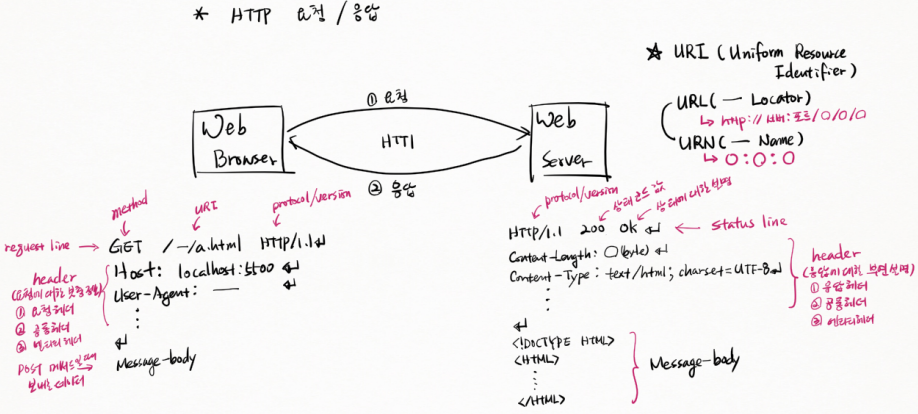 * HTTP 요청 / 응답
☆ URI (Uniform Resource
Identifier)
URL( — Locator)
↳ http:// 서버:포트/○/○/○
URN( — Name)
↳ ○:○:○
① 요청
Web
Browser
HTTP
Web
Server
② 응답
method
URI
protocol/version
request line → GET /~/a.html HTTP/1.1↵
Host: localhost:5500 ↵
User-Agent: — ↵
header
(요청에 대한 부연 설명)
① 요청헤더
② 공통헤더
③ 엔티티헤더
↵
POST 메서드일 때
보내는 데이터
Message-body
protocol/version
상태코드 값
상태에 대한 설명
HTTP/1.1 200 OK ↵ ← status line
Content-Length: ○(byte) ↵
Content-Type: text/html; charset=UTF-8↵
header
(응답에 대한 부연 설명)
① 응답헤더
② 공통헤더
③ 엔티티헤더
↵
<!DOCTYPE HTML>
<HTML>
</HTML>
Message-body